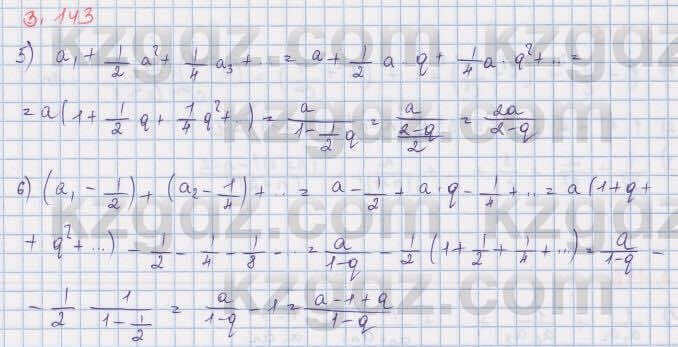 3. 143
5) a₁ + 1/2 a² + 1/4 a₃ + .. = a + 1/2 a · q + 1/4 a · q² + .. =
= a(1 + 1/2 q + 1/4 q² + ..) = a/(1 - 1/2 q) = a/((2-q)/2) = 2a/(2-q)
6) (a₁ - 1/2) + (a₂ - 1/4) + .. = a - 1/2 + a · q - 1/4 + .. = a(1 + q +
+ q² + ...) - 1/2 - 1/4 - 1/8 - .. = a/(1-q) - 1/2 (1 + 1/2 + 1/4 + ..) = a/(1-q) -
- 1/2 1/(1 - 1/2) = a/(1-q) - 1 = (a-1+q)/(1-q)
kzgdz.com